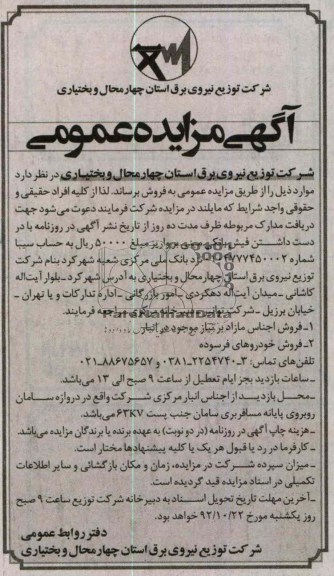 شرکت توزیع نیروی برق استان چهارمحال و بختیاری
آگهی مزایده عمومی
شرکت توزیع نیروی برق استان چهارمحال و بختیاری در نظر دارد
موارد ذیل را از طریق مزایده عمومی به فروش برساند. لذا از کلیه افراد حقیقی و
حقوقی واجد شرایط که مایلند در مزایده شرکت فرمایند دعوت می‌شود جهت
دریافت مدارک مربوطه ظرف مدت ده روز از تاریخ نشر آگهی در روزنامه با در
دست داشتن فیش بانکی مبنی بر واریز مبلغ ۵۰۰۰۰ ریال به حساب سیبا
شماره نزد بانک ملی مرکزی شعبه شهرکرد بنام شرکت
توزیع نیروی برق استان چهارمحال و بختیاری به آدرس شهرکرد ـ بلوار آیت‌اله
کاشانی ـ میدان آیت‌اله دهکردی ـ امور بازرگانی ـ اداره تدارکات و یا تهران ـ
خیابان برزیل ـ شرکت مراجعه فرمایند.
۱ـ فروش اجناس مازاد بر نیاز موجود در انبار
۲ـ فروش خودروهای فرسوده
تلفن‌های تماس: ۳ـ۲۲۵۴۷۴۰ـ۰۳۸۱ و ۸۸۶۷۵۶۵۷ـ۰۲۱
ـ ساعات بازدید بجز ایام تعطیل از ساعت ۹ صبح الی ۱۳ می‌باشد.
ـ محل بازدید از اجناس انبار مرکزی شرکت واقع در دروازه سامان
روبروی پایانه مسافربری سامان جنب پست ۶۳KV می‌باشد.
ـ هزینه چاپ آگهی در روزنامه (در دو نوبت) به عهده برنده یا برندگان مزایده می‌باشد.
ـ کارفرما در رد یا قبول هر یک یا کلیه پیشنهادها مختار است.
ـ میزان سپرده شرکت در مزایده، زمان و مکان بازگشائی و سایر اطلاعات
تکمیلی در اسناد مزایده قید گردیده است.
ـ آخرین مهلت تاریخ تحویل اسناد به دبیرخانه شرکت توزیع ساعت ۹ صبح
روز یکشنبه مورخ ۹۲/۱۰/۲۲ خواهد بود.
دفتر روابط عمومی
شرکت توزیع نیروی برق استان چهارمحال و بختیاری